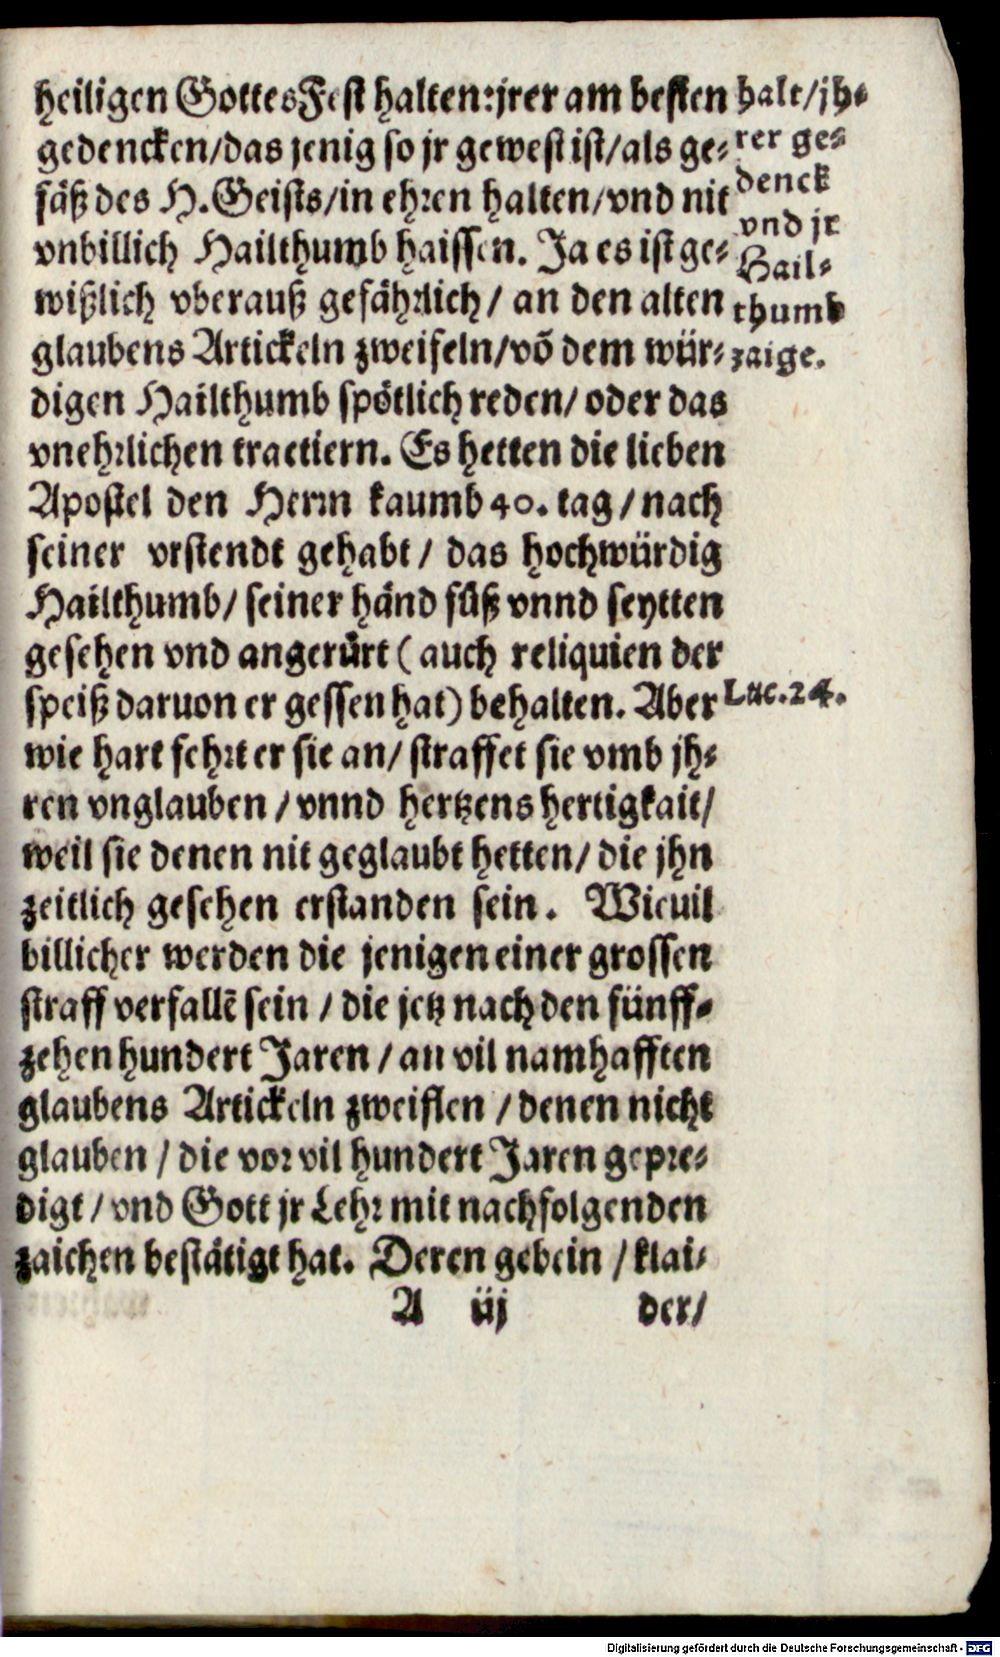 heiligen Gottes Fest halten: jrer am besten
gedencken/das jenig so jr gewest ist/als ge-
fäß des H. Geists/in ehren halten/vnd nit
vnbillich Hailthumb haissen. Ja es ist ge-
wißlich vberauß gefährlich/ an den alten
glaubens Artickeln zweifeln/võ dem wür-
digen Hailthumb spötlich reden/ oder das
vnehrlichen tractiern. Es hetten die lieben
Apostel den Herrn kaumb 40. tag / nach
seiner vrstendt gehabt / das hochwürdig
Hailthumb/ seiner händ füß vnnd seytten
gesehen vnd angerürt ( auch reliquien der
speiß daruon er gessen hat) behalten. Aber
wie hart fehrt er sie an/ straffet sie vmb jh-
ren vnglauben / vnnd hertzens hertigkait/
weil sie denen nit geglaubt hetten/ die jhn
zeitlich gesehen erstanden sein. Wieuil
billicher werden die jenigen einer grossen
straff verfallẽ sein / die jetz nach den fünff-
zehen hundert Jaren / an vil namhafften
glaubens Artickeln zweiflen / denen nicht
glauben / die vor vil hundert Jaren gepre-
digt / vnd Gott jr Lehr mit nachfolgenden
zaichen bestätigt hat. Deren gebein / klai-
A iij der/
halt/jh-
rer ge-
denck
vnd jr
Hail-
thumb
zaige.
Luc. 24.
Digitalisierung gefördert durch die Deutsche Forschungsgemeinschaft - DFG